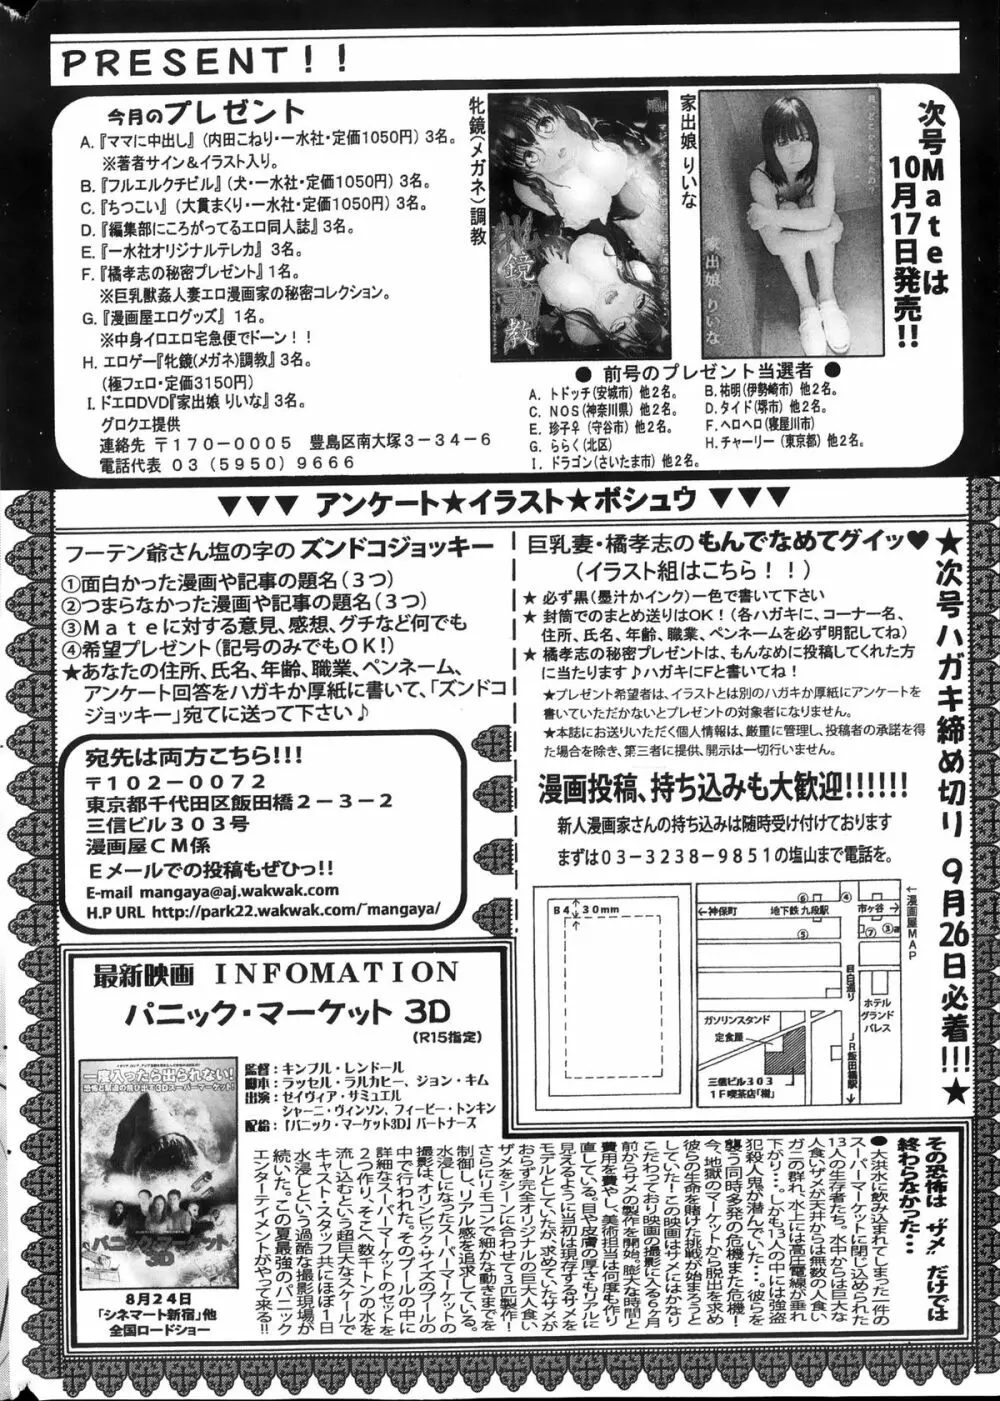 PRESENT!!
今月のプレゼント
A.『ママに中出し』(内田こねり・一水社・定価1050円) 3名。
※著者サイン&イラスト入り。
B.『フルエルクチビル』(犬・一水社・定価1050円) 3名。
C.『ちつこい』(大貫まくり・一水社・定価1050円) 3名。
D.『編集部にころがってるエロ同人誌』3名。
E.『一水社オリジナルテレカ』3名。
F.『橘孝志の秘密プレゼント』1名。
※巨乳獣姦人妻エロ漫画家の秘密コレクション。
G.『漫画屋エログッズ』1名。
※中身イロエロ宅急便でドーン!!
H.エロゲー『牝鏡(メガネ)調教』3名。
(極フェロ・定価3150円)
I.ドエロDVD『家出娘 りいな』3名。
グロクエ提供
連絡先 〒170-0005 豊島区南大塚3-34-6
電話代表 03(5950)9666
牝鏡(メガネ)調教
牝鏡調教
家出娘 りいな
家出娘 りいな
次号Mateは
10月17日発売!!
● 前号のプレゼント当選者 ●
A. トドッチ(安城市)他2名。
B.祐明(伊勢崎市)他2名。
C. NOS(神奈川県)他2名。
D.タイド(堺市)他2名。
E. 珍子♀(守谷市)他2名。
F.ヘロヘロ(寝屋川市)
G. ららく(北区)
H.チャーリー(東京都)他2名。
I. ドラゴン(さいたま市)他2名。
▼▼▼ アンケート★イラスト★ボシュウ ▼▼▼
フーテン爺さん塩の字のズンドコジョッキー
①面白かった漫画や記事の題名(3つ)
②つまらなかった漫画や記事の題名(3つ)
③Mateに対する意見、感想、グチなど何でも
④希望プレゼント(記号のみでもOK!)
★あなたの住所、氏名、年齢、職業、ペンネーム、
アンケート回答をハガキか厚紙に書いて、「ズンドコ
ジョッキー」宛てに送って下さい♪
宛先は両方こちら!!!
〒102-0072
東京都千代田区飯田橋2-3-2
三信ビル303号
漫画屋CM係
Eメールでの投稿もぜひっ!!
E-mail mangaya@aj.wakwak.com
H.P URL http://park22.wakwak.com/~mangaya/
巨乳妻・橘孝志のもんでなめてグイッ♥
(イラスト組はこちら!!)
★ 必ず黒(墨汁かインク)一色で書いて下さい
★ 封筒でのまとめ送りはOK!(各ハガキに、コーナー名、
住所、氏名、年齢、職業、ペンネームを必ず明記してね)
★ 橘孝志の秘密プレゼントは、もんなめに投稿してくれた方
に当たります♪ハガキにFと書いてね!
★プレゼント希望者は、イラストとは別のハガキか厚紙にアンケートを
書いていただかないとプレゼントの対象者になりません。
★本誌にお送りいただく個人情報は、厳重に管理し、投稿者の承諾を得
た場合を除き、第三者に提供、開示は一切行いません。
漫画投稿、持ち込みも大歓迎!!!!!!
新人漫画家さんの持ち込みは随時受け付けております
まずは03-3238-9851の塩山まで電話を。
B4 30mm
←神保町
地下鉄 九段駅
市ヶ谷→
⑥
④
⑤
⑦
③
目白通り
ホテル
グランド
パレス
ガソリンスタンド
定食屋
三信ビル303
1F喫茶店「樹」
JR飯田橋駅
←漫画屋MAP
★次号ハガキ締め切り 9月26日必着!!!★
最新映画 INFOMATION
パニック・マーケット 3D
(R15指定)
監督:キンブル・レンドール
脚本:ラッセル・ラルカヒー、ジョン・キム
出演:ゼイヴィア・サミュエル
シャーニ・ヴィンソン、フィービー・トンキン
配給:『パニック・マーケット3D』パートナーズ
一度入ったら出られない!
パニック・マーケット
3D
8月24日
「シネマート新宿」他
全国ロードショー
その恐怖は“ザメ”だけでは
終わらなかった…
●大洪水に飲み込まれてしまった一件の
スーパーマーケットに閉じ込められた
13人の生存者たち。水中からは巨大な
人食いザメが天井からは無数の人食い
ガニの群れ、水上には高圧電線が垂れ
下がり…。しかも13人の中には強盗
犯殺人鬼が潜んでいた…。彼らを
襲う同時多発の危機また危機!
今、地獄のマーケットから脱出を求め
彼らの生命を賭けた挑戦が始まろうと
していた! この映画はサメにはかなり
こだわっており映画の撮影に入る6ヵ月
前からサメの製作を開始。膨大な時間と
費用を費やし、美術担当は何度も作り
直している。目や皮膚の厚さもリアルに
見えるように当初は現存するサメを
モデルとしていたが、求めていたサメが
おらず完全オリジナルの巨大人食い
ザメをシーンに合わせて3匹製作!
さらにリモコンで細かな動きまでを
制御し、リアル感を追求している。
水浸しになったスーパーマーケットの
撮影は、オリンピック・サイズのプールの
中で行われた。そのプールの中に
詳細なスーパーマーケットのセットを
2つ作り、そこへ数千トンの水を
流し込むという超巨大なスケールで
キャスト・スタッフ共にほぼ1日
水浸しという過酷な撮影現場が
続いた。この夏最強のパニック
エンターテイメントがやって来る!!